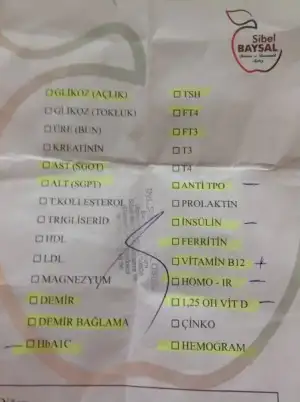 Sibel
BAYSAL
GLİKOZ (AÇLIK)
GLİKOZ (TOKLUK)
ÜRE (BUN)
KREATİNİN
AST (SGOT)
ALT (SGPT)
T.KOLLESTEROL
TRİGLİSERİD
HDL
LDL
MAGNEZYUM
DEMİR
DEMİR BAĞLAMA
HbA1C
TSH
FT4
FT3
T3
T4
ANTİ TPO
PROLAKTİN
İNSÜLİN
FERRİTİN
VİTAMİN B12 +
HOMO - IR
1,25 OH VİT D
ÇİNKO
HEMOGRAM